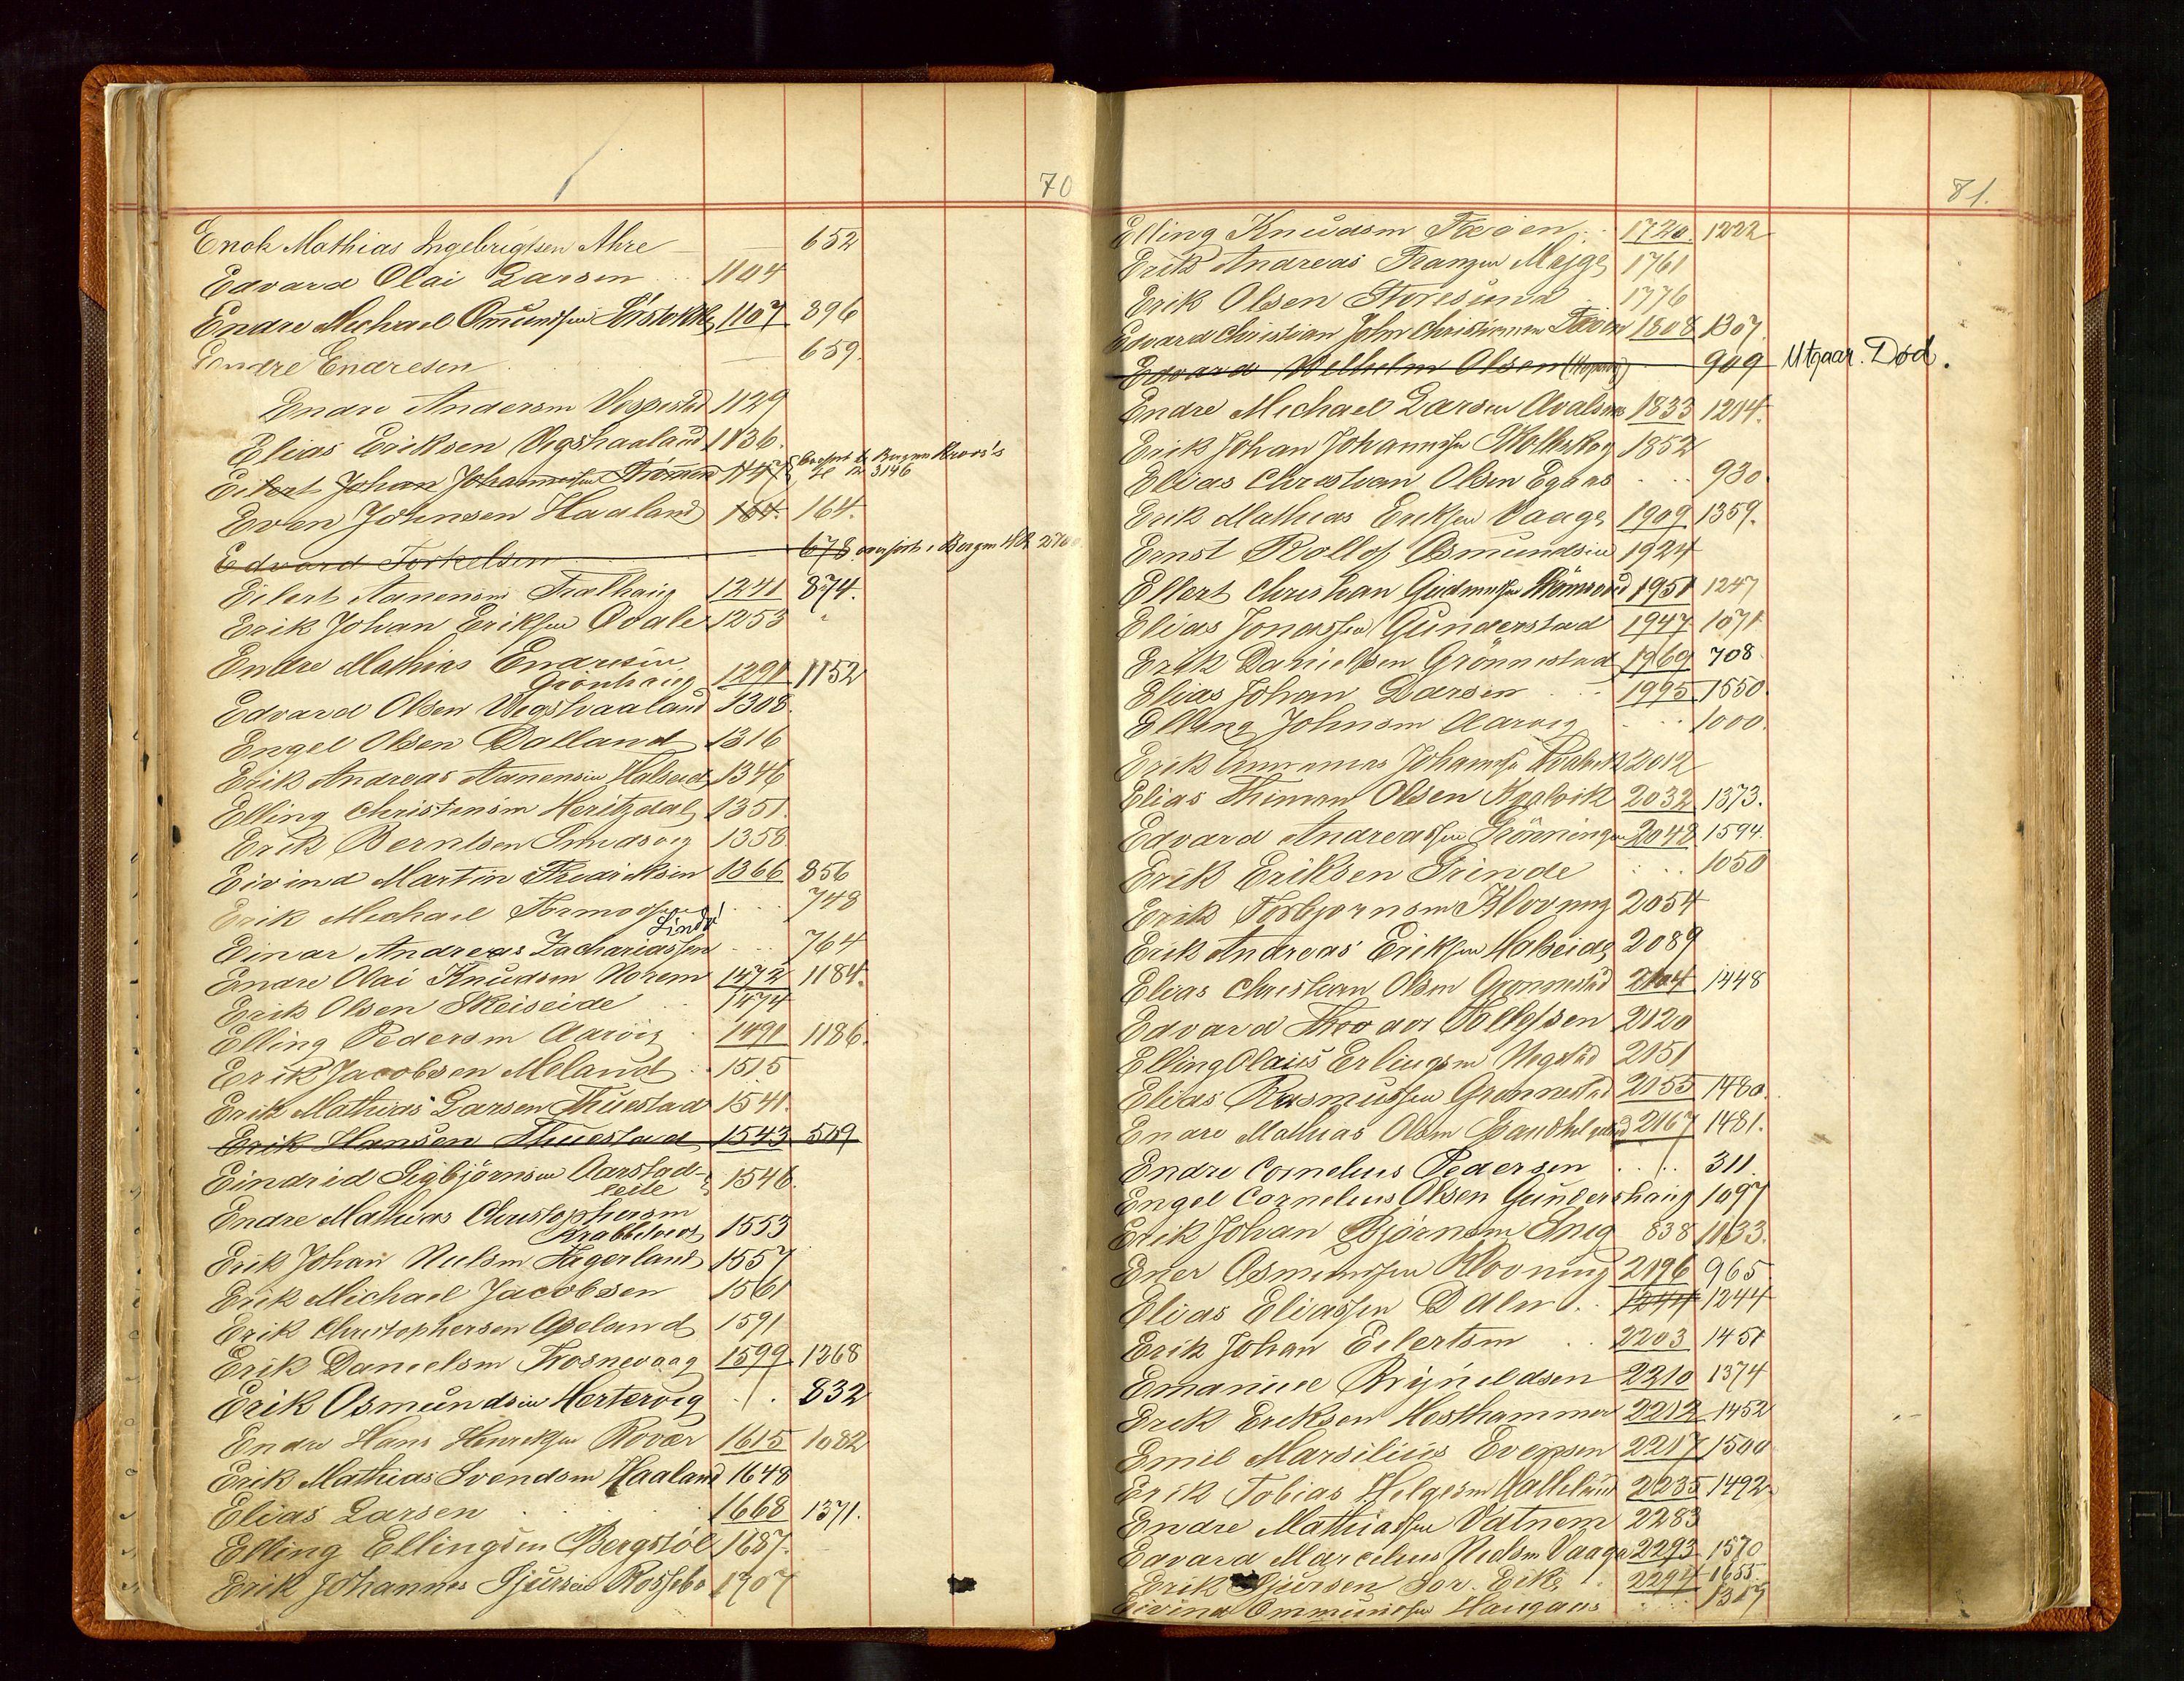 70
Enok Mathias Ingebrigtsen Ahre 652
Edvard Olai Larsen 1104
Endre Michael Omundsen 1107 896
Endre Endresen 659.
Endre Andersen Vespestad 1129
Elias Eriksen Vigshaaland 1136.
Eilert Johan Johannessen 1147 3146
Even Johnsen Haaland 164. 164.
Edvard Torkelsen 678 overført i Bergen
Eilert Aanensen Trælhaug 1241 874.
Erik Johan Eriksen Qvale 1253 "
Endre Mathias Endresen
Grönhaug 1291 1152
Edvard Olsen Vigshaaland 1308.
Engel Olsen Dalland 1316
Erik Andreas Aanensen Halseid 1346
Elling Christensen Heritzdal 1351.
Erik Berntsen 1358
Eivind Martin Fredriksen 1366 856
Erik Michael Tormodsen 748
Einar Andreas Zachariassen 764
Endre Olai Knudsen 1472 1184.
Erik Olsen Skeiseide 1474
Elling Pedersen Aarvig 1491 1186.
Erik Jacobsen Meland 1515
Erik Mathias Larsen Thuestad 1541.
Erik Hansen Thuestad 1543 509
Eindrid Sigbjörnsen Aarstad-
1546.
Endre Mathias Christophersen
1553
Erik Johan Nielsen Fagerland 1557
Erik Michael Jacobsen 1561
Erik Christophersen Apeland 1591
Erik Danielsen Trosnevaag 1599 1268
Erik Osmundsen Hertervig 832
Endre Hans Henriksen Rövær 1615 1082
Erik Mathias Svendsen Haaland 1648
Elias Larsen 1668 1371.
Elling Ellingsen Bergstöl 1687.
Erik Johannes Sjursen Rossebø 1707
81.
Elling Knudsen 1720. 1222
Erik Andreas 1761
Erik Olsen Storesund 1776
Edvard Christian John Christiansen 1808 1307
Edvard Wilhelm Olsen 909 Utgaar. Död.
Endre Michael Larsen 1833 1204.
Erik Johan Johannessen 1852
Elias Christian Olsen 930.
Erik Mathias Eriksen Vaage 1909 1359.
Ernst Rollof Osmundsen 1924
Ellert Christian 1951 1247
Elias Jonassen Gunderstad 1947 1071
Erik Danielsen Grönnestad 1969 708
Elias Johan Larsen 1995 1550.
Elling Johnsen Aarvig 1000.
Erik Ammanias Johannessen 2012
Elias Thimann Olsen 2032 1373.
Edvard Andreassen Grönningen 2048 1594.
Erik Eriksen Grinde 1050
Erik Torbjörnsen Klovning 2054
Erik Andreas Eriksen Halseide 2089
Elias Christian Olsen Grönnestad 2104 1448
Edvard Theodor Tollefsen 2120
Elling Olaus Erlingsen 2151
Elias Rasmussen Grønnestad 2055 1480.
Endre Mathias Olsen 2167 1481.
Endre Cornelius Pedersen 311.
Engel Cornelius Olsen Gundershaug 1097
Erik Johan Bjørnsen 838 1133.
Einer Osmundsen Klovning 2196 965
Elias Eliassen 1244 1244
Erik Johan Eilertsen 2203 1451
Emanuel Reynildsen 2210 1374
Erik Eriksen Hesthammer 2212 1452
Emil Marsilius Evensen 2217 1500
Erik Tobias Helgesen 2235 1492
Endre Mathiassen Vatnem 2283
Edvard Marcelius Nielsen Vaage 2293 1570
Erik Sjursen Sör. Eike 2294 1655.
Eivind Ommundsen Haugaas